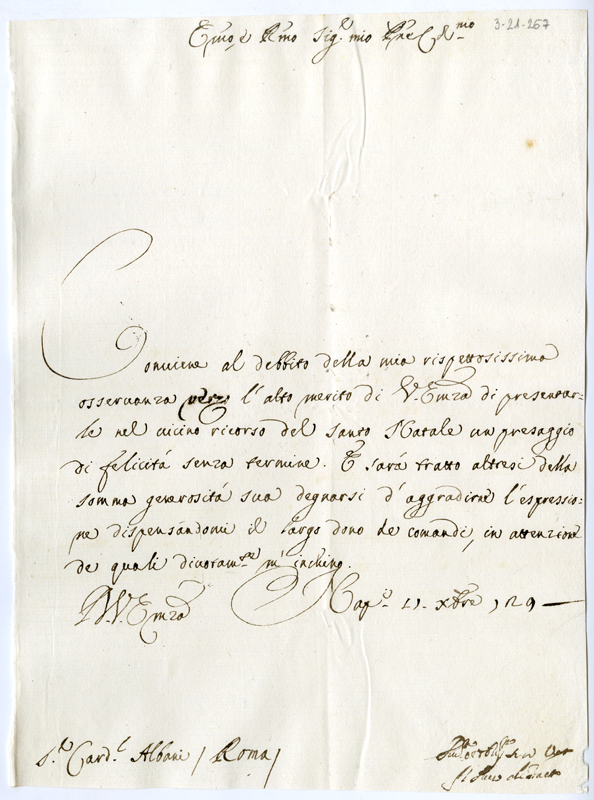 3-21-267
Emo, e Rmo Sig.r mio Pne Col.mo
Conviene al debbito della mia rispettosissima
osservanza verso l'alto merito di V. Emza di presentar=
le nel vicino ricorso del Santo Natale un presaggio
di felicità senza termine. E sarà tratto altresi della
somma generosità sua degnarsi d'aggradirne l'espressio=
ne dispensandomi il largo dono de comandi, in attenzione
de quali divotam.te m'inchino.
D. V. Emza Nap. 21. Xbre 729
S.r Card.l Albani / Roma /